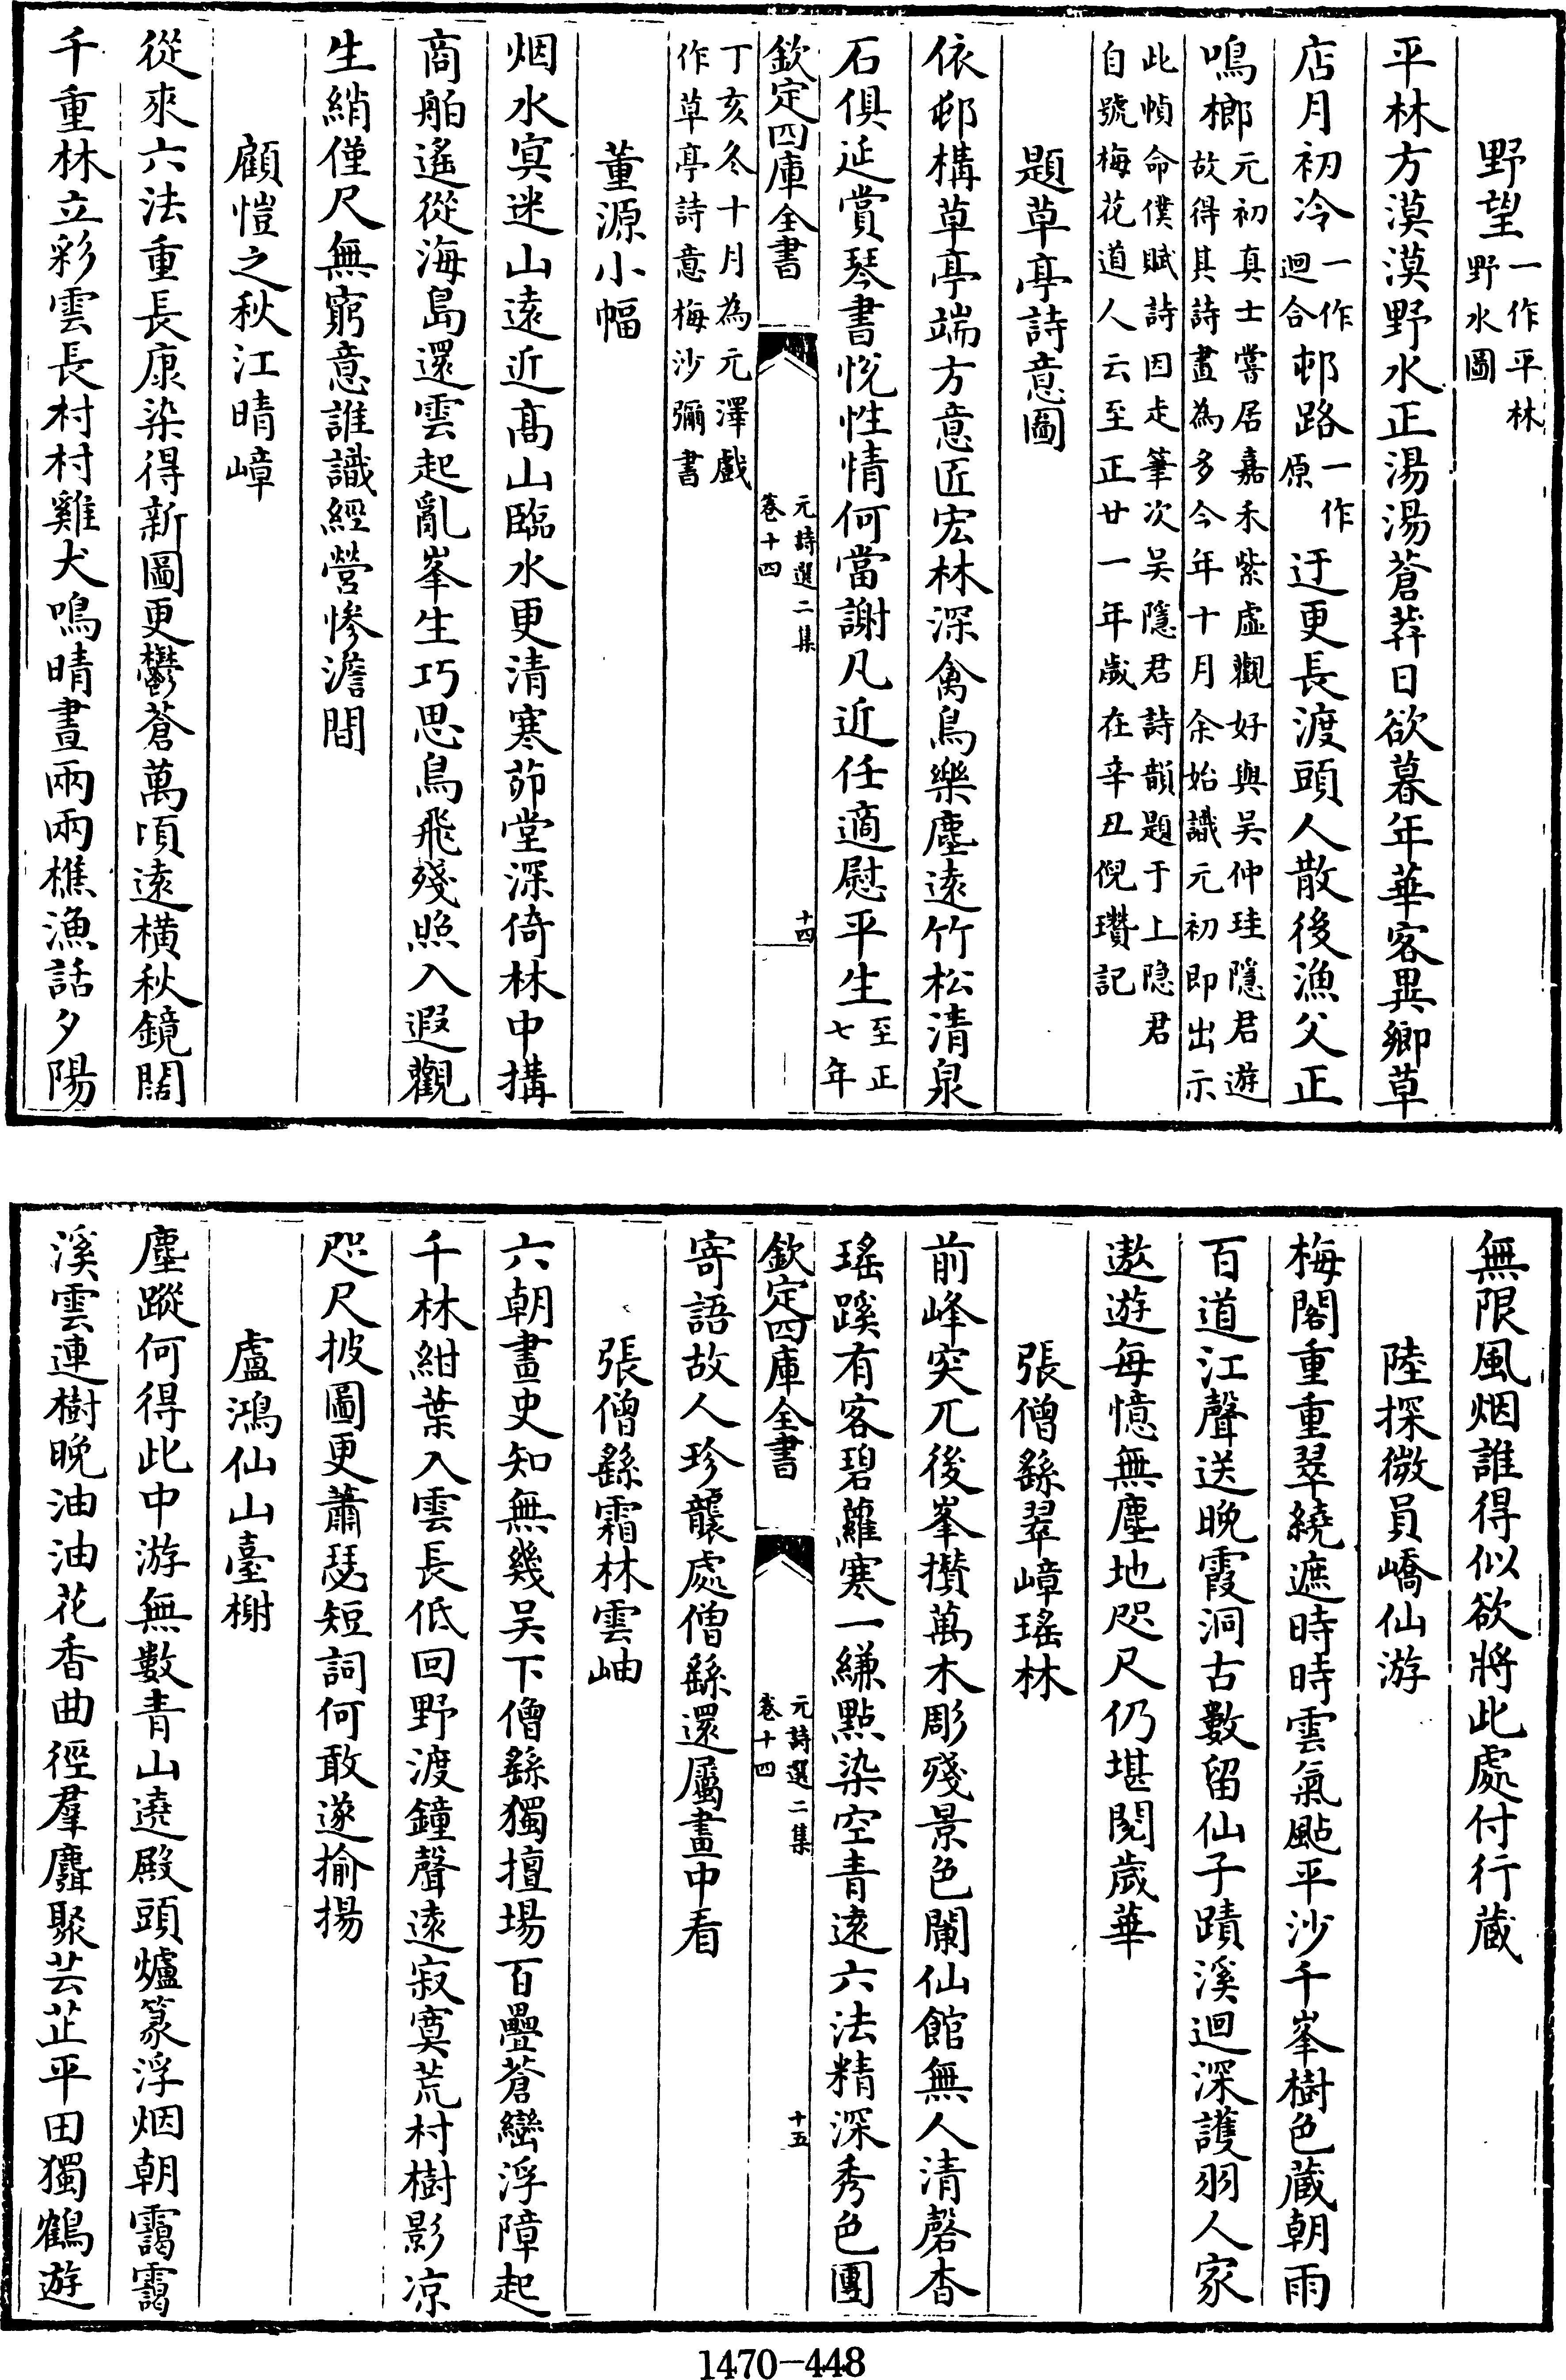 野望一作平林野水圖
平林方漠漠野水正湯湯蒼莽日欲暮年華客異鄉草
店月初冷一作迴合邨路一作原迂更長渡頭人散後漁父正
鳴榔元初真士嘗居嘉禾紫虛觀好與吳仲珪隱君遊故得其詩畫為多今年十月余始識元初即出示
此幀命僕賦詩因走筆次吴隱君詩韻題于上隐君自號梅花道人云至正廿一年歲在辛丑倪瓚記
題草亭詩意圖
依邨構草亭端方意匠宏林深禽鳥樂塵遠竹松清泉
石俱延賞琴書悅性情何當謝凡近任適慰平生至正七年
欽定四庫全書
元詩選二集
卷十四
十四
丁亥冬十月為元澤戲作草亭詩意梅沙彌書
董源小幅
烟水寘迷山遠近髙山臨水更清寒茆堂深倚林中搆
商舶遙從海島還雲起亂峯生巧思鳥飛殘照入遐觀
生綃僅尺無窮意誰識經營慘澹間
顧愷之秋江晴嶂
從來六法重長康染得新圖更鬱蒼萬頃遠橫秋鏡闊
千重林立彩雲長村村雞犬鳴晴晝兩兩樵漁話夕陽
無限風烟誰得似欲將此處付行藏
陸探微員嶠仙游
梅閣重重翠繞遮時時雲氣颭平沙千峯樹色藏朝雨
百道江聲送晚霞洞古數留仙子蹟溪迴深護羽人家
遨遊每憶無塵地咫尺仍堪閱歲華
張僧繇翠嶂瑤林
前峰突兀後峯攢萬木彫殘景色闌仙館無人清磬杳
瑤蹊有客碧蘿寒一縑點染空青遠六法精深秀色團
欽定四庫全書
元詩選二集
卷十四
十五
寄語故人珍襲處僧繇還屬畫中看
張僧繇霜林雲岫
六朝畫史知無幾吴下僧繇獨擅場百疊蒼巒浮障起
千林紺葉入雲長低回野渡鐘聲遠寂寞荒村樹影凉
咫尺披圖更蕭瑟短詞何敢遂揄揚
盧鴻仙山臺榭
塵蹤何得此中游無數青山遶殿頭爐篆浮烟朝靄靄
溪雲連樹晚油油花香曲徑羣麏聚芸芷平田獨鶴遊
1470-448